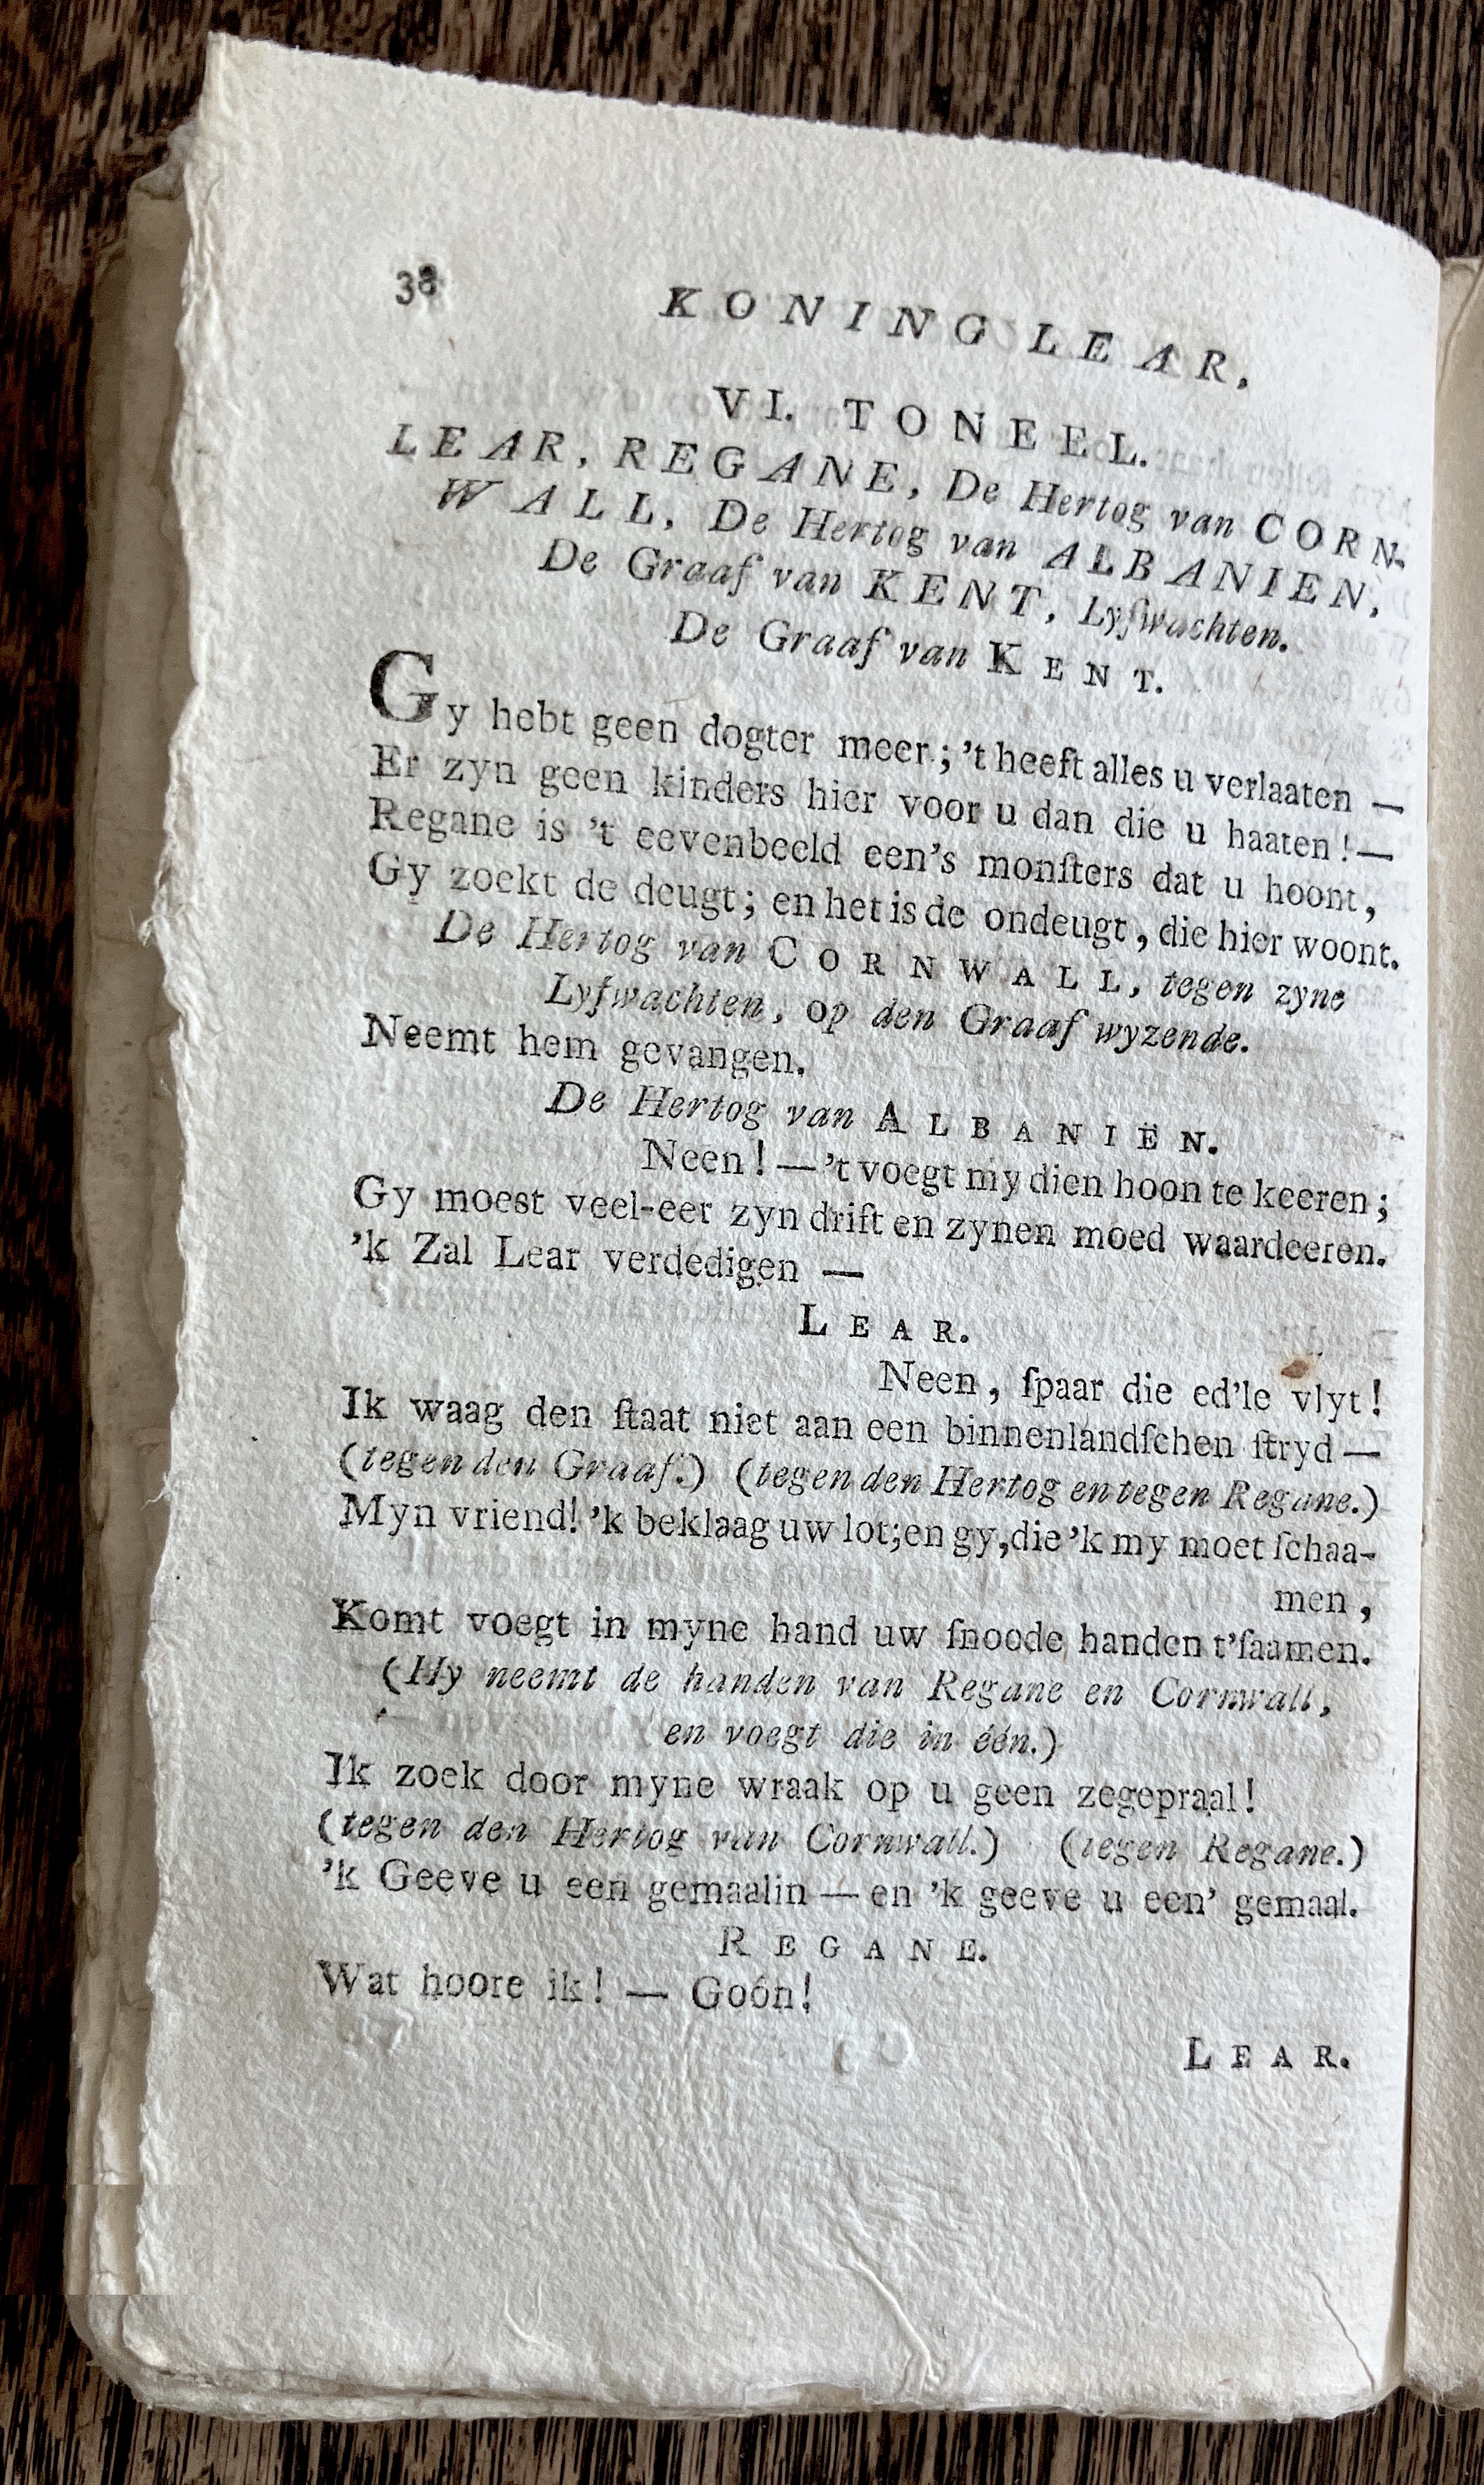 38
KONING LEAR,
VI. TONEEL.
LEAR, REGANE, De Hertog van CORN-
WALL, De Hertog van ALBANIEN,
De Graaf van KENT, Lyfwachten.
De Graaf van KENT.
Gy hebt geen dogter meer; 't heeft alles u verlaaten —
Er zyn geen kinders hier voor u dan die u haaten! —
Regane is 't eevenbeeld een's monſters dat u hoont,
Gy zoekt de deugt; en het is de ondeugt, die hier woont.
De Hertog van CORNWALL, tegen zyne
Lyfwachten, op den Graaf wyzende.
Neemt hem gevangen.
De Hertog van ALBANIËN.
Neen! — 't voegt my dien hoon te keeren;
Gy moest veel-eer zyn drift en zynen moed waardeeren.
'k Zal Lear verdedigen —
LEAR.
Neen, ſpaar die ed'le vlyt!
Ik waag den ſtaat niet aan een binnenlandſchen ſtryd —
(tegen den Graaf.) (tegen den Hertog en tegen Regane.)
Myn vriend! 'k beklaag uw lot; en gy, die 'k my moet ſchaa-
men,
Komt voegt in myne hand uw ſnoode handen t'ſaamen.
(Hy neemt de handen van Regane en Cornwall,
en voegt die in één.)
Ik zoek door myne wraak op u geen zegepraal!
(tegen den Hertog van Cornwall.) (tegen Regane.)
'k Geeve u een gemaalin — en 'k geeve u een' gemaal.
REGANE.
Wat hoore ik! — Goón!
LEAR.